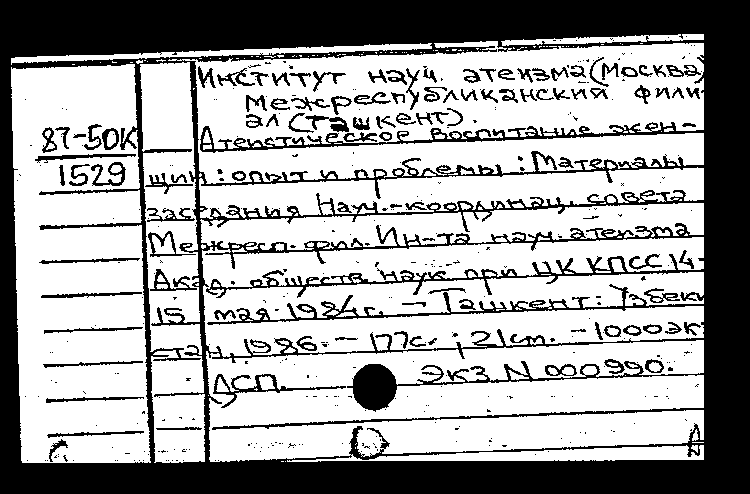 Институт науч. атеизма (Москва)
Межреспубликанский фили-
ал (Ташкент).
87-50К Атеистическое воспитание жен-
1529 щин: опыт и проблемы: Материалы
заседания Науч.-координац. совета
Межресп. фил. Ин-та науч. атеизма
Акад. обществ. наук при ЦК КПСС 14-
15 мая 1984г. - Ташкент: Узбеки
стан, 1986. - 177с.; 21см. - 1000эк
ДСП. Экз. N 000990.